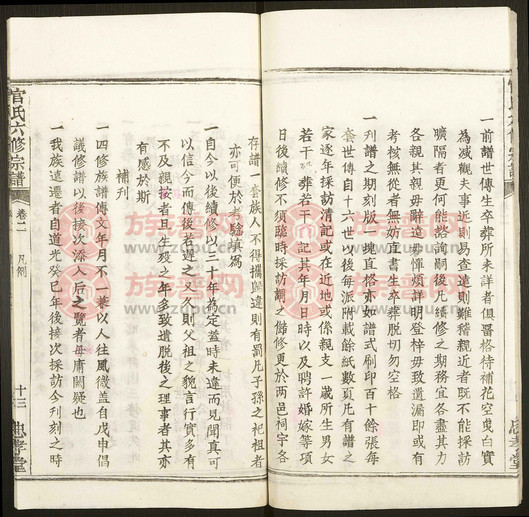 一前譜世傳生卒葬所未詳者俱畧格待補花空曳白實
為減觀夫事近則易查遠則難稽親近者既不能採訪
曠隔者更何能諮詢嗣後凡續修之期務宜各盡其力
各親其親毋辭造毋憚煩詳明登梓毋致遺漏即或有
考核無從者無妨直書生卒葬脫切勿空格
一列譜之期刻版一塊直格亦如譜式刷印百十餘張每
套世傳自十六世以後每派附載餘紙數頁凡有譜之
家逐年採訪清記或在近地或係親支一歲所生男女
若干 葬若干 記其年月日時以及聘許婚嫁等項
日後續修不須臨時採訪 之 修更於兩邑祠宇各
存譜一套族人不得攜歸違則有罰凡子孫之祀祖者
亦可便於考驗填寫
一自今以後續修 以三十年為定蓋時未遠而見聞真可
以信今而傳後若遲之又久則父祖之貌言行實多有
不及親按者且生歿之年多致遺脫後之理事者其亦
有感於斯
補刋
一四修族譜傳文年月不一兼以人往風微蓋自戊申倡
議修譜以後接次添入后之覽者毋庸闕疑也
一我族遠遷者自道光癸巳年後接次採訪今刋刻之時
官氏六修宗譜
卷一
凡例
十三
忠孝堂
族譜网
www.zupu.cn